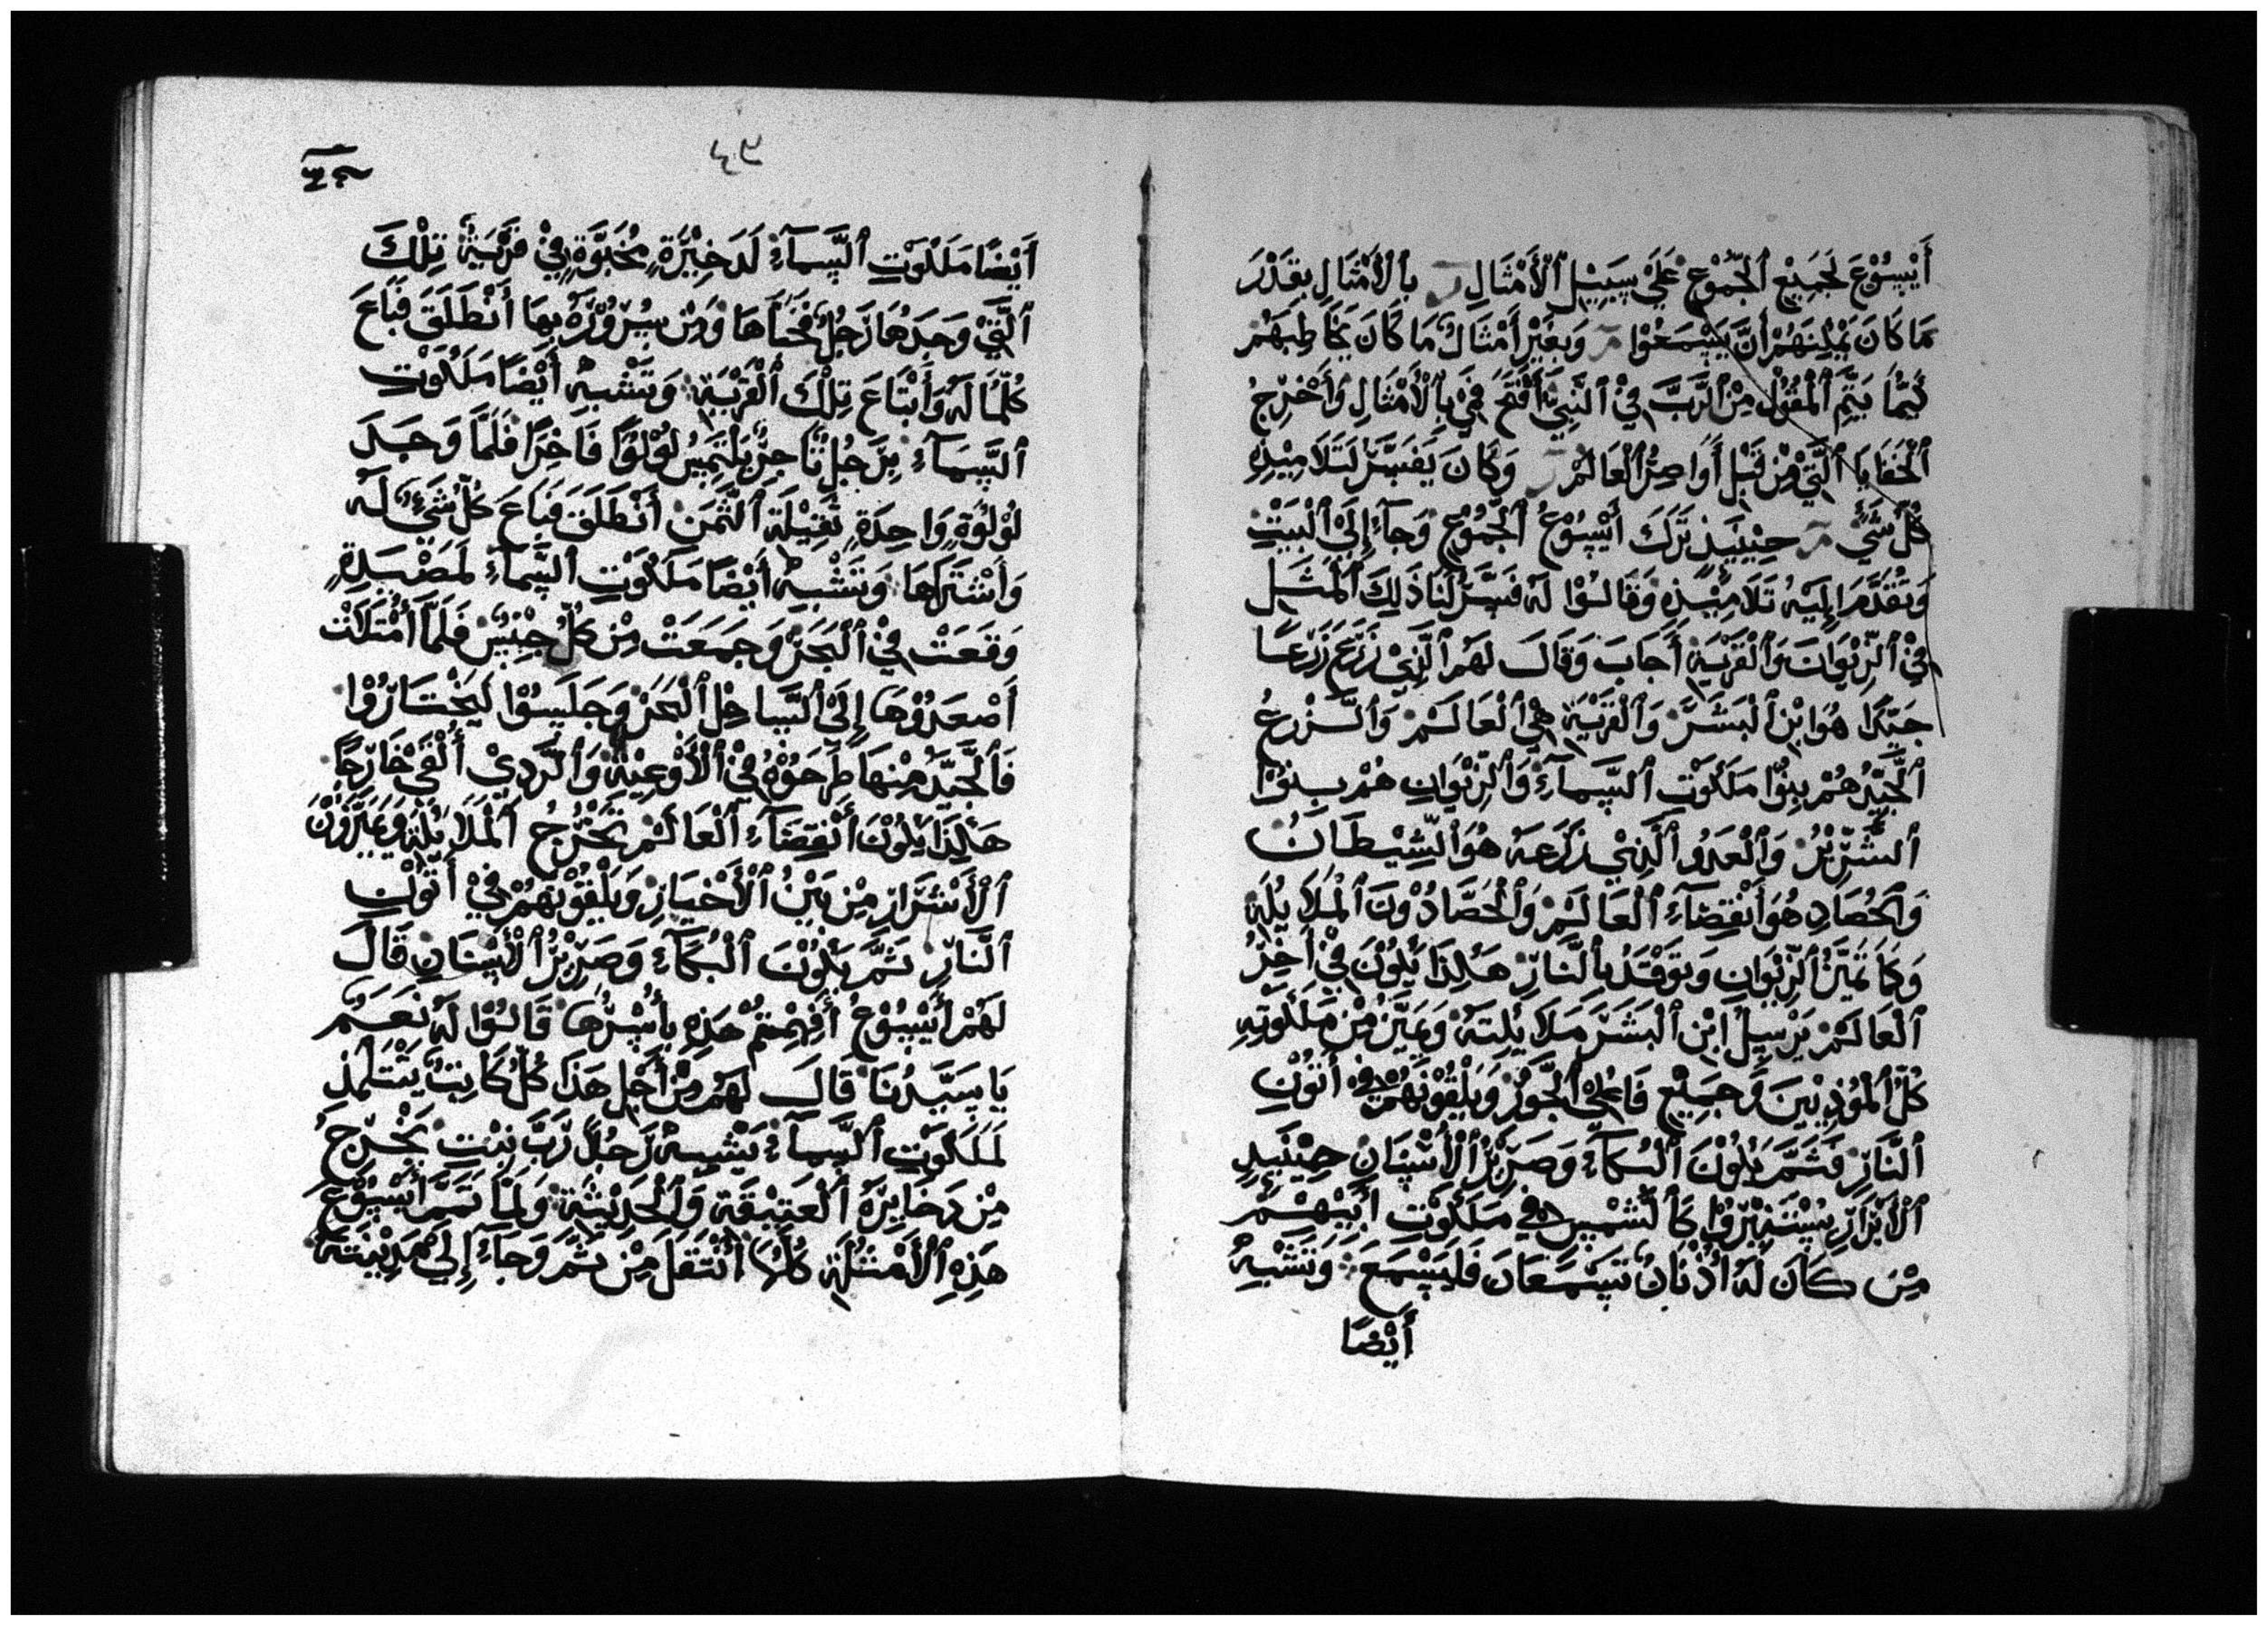 أَيْسُوْعَ لِجَمِيْعِ ٱلْجُمُوْعِ عَلَيْ سَبِيْلِ ٱلْأَمْثَالِ بِالْأَمْثَالِ بِقَدْرَ
مَا كَانَ يُمْكِنَهُمْ أَنْ يَسْمَعُوْا وَبِغَيْرِ أَمْثَالٌ مَا كَانَ يُخَاطِبَهُمْ
كَيْمَا يَتِمَّ ٱلْمَقُوْلُ مِنَ ٱلرَّبَّ فِيْ ٱلنَّبِيَّ أَفْتَحُ فِيَّ بِالْأَمْثَالِ وَأُخْرِجُ
ٱلْخَفَايَا ٱلَّتِيْ مِنْ قَبْلِ أَوَاصِرُ ٱلْعَالَمْ وَكَانَ يُفَسِّرُ لِتَلَامِيْذِهِ
كُلَّ شَيْءٍ حِيْنَيِٕذٍ تَرَكَ أَيْسُوْعُ ٱلْجُمُوْعِ وَجَآءَ إِلَيْ ٱلْبَيْتِ
وَتَقَدَّمَ إِلَيْهِ تَلَامِيْذِهِ وَقَالُوْا لَهُ فَسِّرْ لَنَا ذَلِكَ ٱلْمَثَلِ
فِيْ ٱلزِّيْوَانَ وَٱلْقَرْيَةِ أَجَابَ وَقَالَ لَهُمْ ٱلَّذِيْ زَرَعَ زَرْعًا
جَيِّدًا هُوَ ابْنِ ٱلْبَشَرْ وَٱلْقَرْيَةِ هِيَ ٱلْعَالَمْ وَٱلزَّرْعُ
ٱلْجَيِّدُ هُمْ بِنُوْا مَلَكُوْتِ ٱلسَّمَآءِ وَٱلزِّيْوَانِ هُمْ بِنُوْا
ٱلشِّرِّيْرُ وَٱلْعَدُوُ ٱلَّذِيْ زَرَعَهُ هُوَ ٱلشَّيْطَانُ
وَٱلْحُصَادِ هُوَ أَنْقِضَآءِ ٱلْعَالَمْ وَٱلْحَصَّادُوْنَ ٱلْمَلَايِٕكَةِ
وَكَمَا يُمَيَّزُ ٱلزِّيْوَانِ وَتُوْقَدُ بِالنَّارِ هَكَذَا يَكُوْنَ فِيْ أَخِرِ
ٱلْعَالَمْ يُرْسِلُ ابْنِ ٱلْبَشَرَ مَلَايِٕكَتَهُ وَيُمَيِّزُ مِنْ مَلَكُوْتِهِ
كُلَّ ٱلْمُوْذِيِيْنَ وَجَمِيْعِ فَاعِلِيْ ٱلْجَوْرِ وَيُلْقُوْنَهُمْ فِيْ أَتُوْنِ
ٱلنَّارِ فَثَمَّ يَكُوْنَ ٱلْبُكَآءَ وَصَرِيْرُ ٱلْأَسْنَانِ حِيْنَيِٕذٍ
ٱلْأَبْرَارِ يَسْتَنِيْرُوْا كَٱلشَّمْسِ فِيْ مَلَكُوْتِ أَبِيْهِمْ
مِنْ كَانَ لَهُ أُذْنَانُ تَسْمَعَانِ فَلْيَسْمَعْ وَتَشْبِهُ
أَيْضًا
٤٣
أَيْضًا مَلَكُوْتِ ٱلسَّمَآءِ لَدَخِيْرَةٍ مُخَبَّوَةٍ فِيْ قَرْيَةٌ تِلْكَ
ٱلَّتِيْ وَجَدَهَا رَجُلٌ فَخَبَأَهَا وَمِنْ سُرُوْرِهِ بِهَا أَنْطَلَقَ فَبَاعَ
كُلَّمَا لَهُ وَأَبْتَاعَ تِلْكَ ٱلْقَرْيَةِ وَتَشْبِهُ أَيْضًا مَلَكُوْتِ
ٱلسَّمَآءِ بِرَجُلٍ تَاجِرٌ يَلْتَمِسُ لُوْلُوًا فَاخِرًا فَلَمَّا وَجَدَ
لُوْلُوَةٍ وَاحِدَةٍ ثَقِيْلَةِ ٱلثَّمَنِ أَنْطَلَقَ فَبَاعَ كُلَّ شَيْءٍ لَهُ
وَأَشْتَرَاهَا وَتَشْبِهُ أَيْضًا مَلَكُوْتِ ٱلسَّمَآءِ لَمَصْيَدِةٍ
وَقَعَتْ فِيْ ٱلْبَحَرْ وَجَمَعَتْ مِنْ كُلِّ جِنْسٍ فَلَمَّا أَمْتَلَاتْ
أَصْعَدُوْهَا إِلَيْ ٱلسَّاحِلِ ٱلْبَحَرْ وَجَلَسُوْا لَيَخْتَارُوْا
فَٱلْجَيِّدُ مِنْهَا طَرَحُوْهُ فِيْ ٱلْأَوْعِيْةِ وَٱلرَّدِيْ أُلْقِيَ خَارِجًا
هَكَذَا يَكُوْنَ أَنْقِضَآءِ ٱلْعَالَمْ تَخْرُجُ ٱلْمَلَايِٕكَةِ وَيُمَيِّزُوْنَ
ٱلْأَشْرَارِ مِنْ بَيْنُ ٱلْأَخْيَارِ وَيُلْقُوْنَهُمْ فِيْ أَتُوْنِ
ٱلنَّارِ ثَمَّ يَكُوْنَ ٱلْبُكَآءِ وَصَرِيْرُ ٱلْأَسْنَانِ قَالَ
لَهُمْ أَيْسُوْعُ أَفَهِمْتُمْ هَذِهِ بِأَسْرُهَا قَالُوْا لَهُ نَعَمْ
يَا سَيِّدُنَا قَالَ لَهُمْ مِنْ أَجْلِ هَذَا كُلُّ كَاتِبٌ يَتْتَلْمَذِ
لَمَلَكُوْتِ ٱلسَّمآءِ يَشْبِهُ رَجُلاً رَبَّ بَيْتٍ يَخْرِجُ
مِنْ دَخَايِرَهُ ٱلْعَتِيْقَةِ وَٱلْحَدِيْثَةِ وَلَمْا تَمَّمَ أَيْسُوْعَ
هَذِهِ ٱلْأَمْثِلَةِ كُلَّهَا أَنْتَقَلَ مِنْ ثَمَّ وَجَآءَ إِلَيْ مَدِيْنَتَهُ